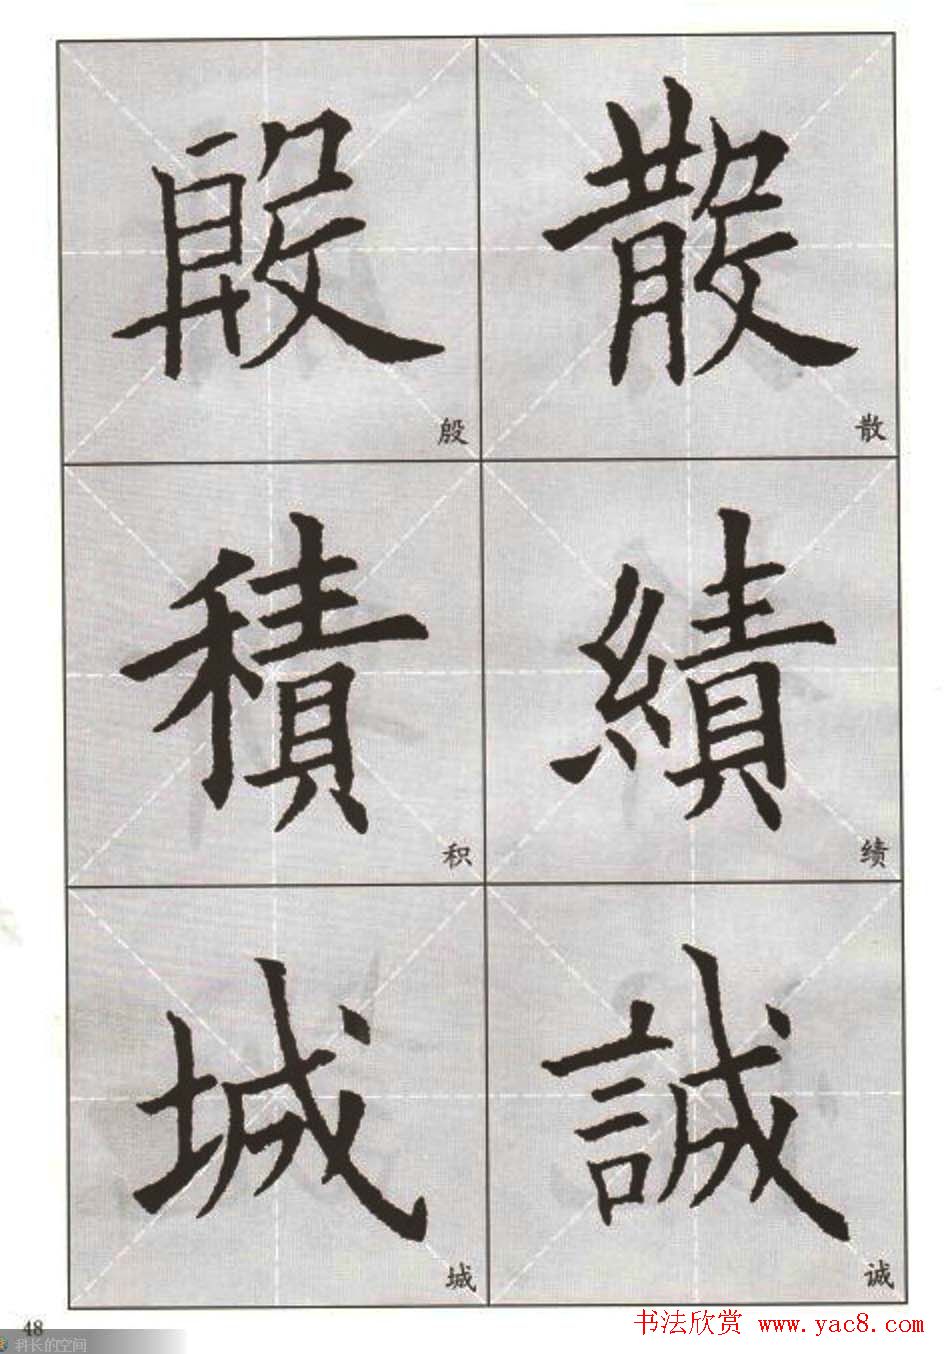 殷 散
殷 散
積 績
积 绩
城 誠
城 诚
48
科长的空间
书法欣赏 www.yac8.com